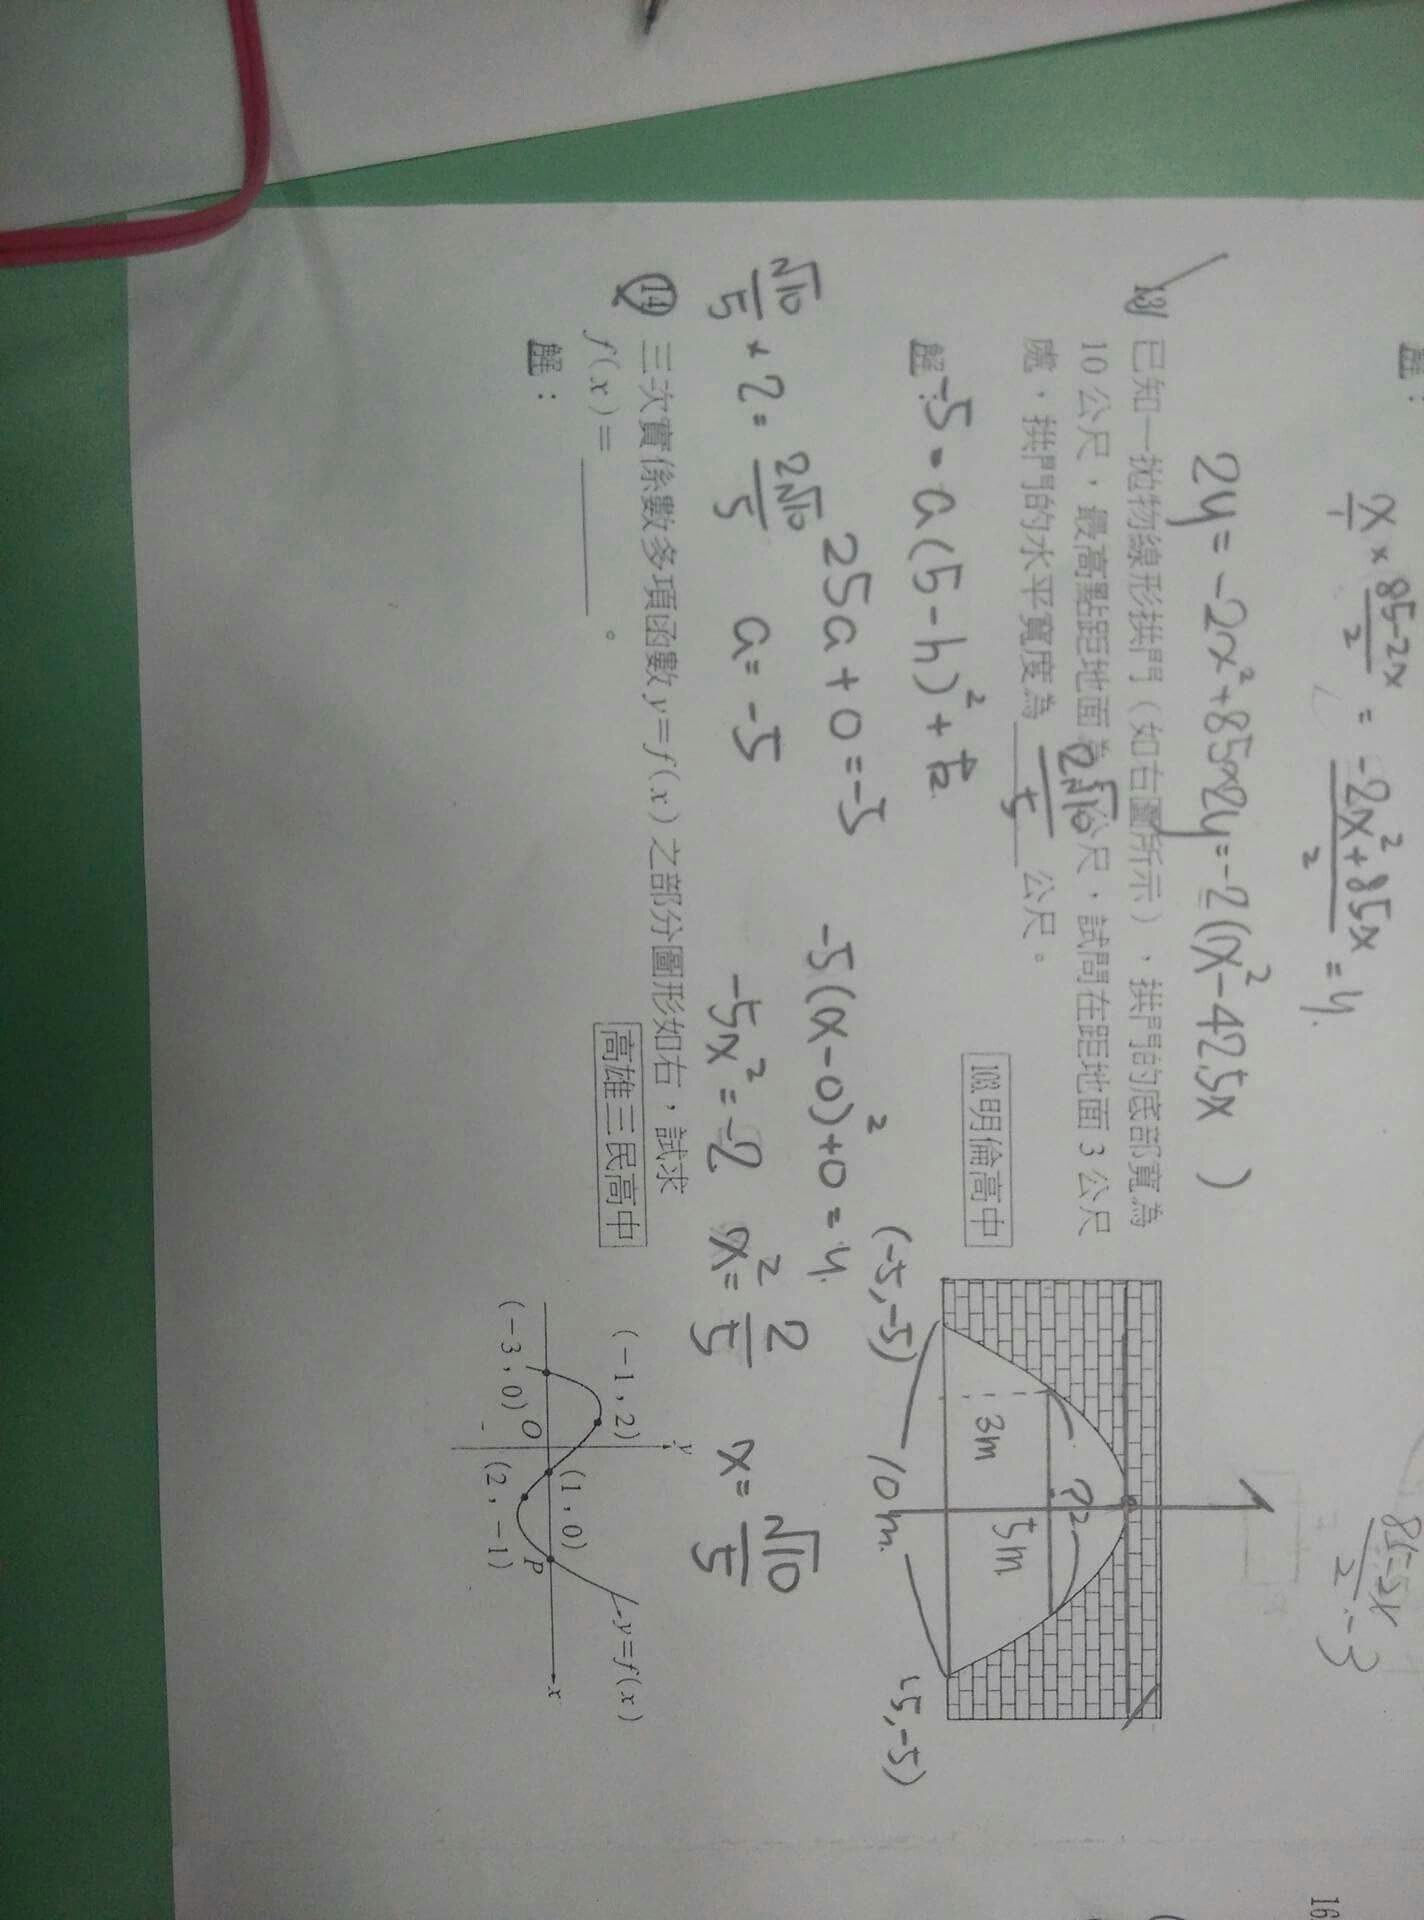 解：
x/1 × 85-2x/2 = -2x²+85x/2 = y.
85-2x/2 = 3
2y = -2x²+85x 2y = -2(x²-42.5x )
13 已知一拋物線形拱門（如右圖所示），拱門的底部寬為
10公尺，最高點距地面為5公尺，試問在距地面3公尺
處，拱門的水平寬度為 2√10/5 公尺。
103明倫高中
解：-5 = a(5-h)²+k
25a+0=-5
a=-5
-5(x-0)²+0=y.
-5x²=-2 x²=2/5 x=√10/5
√10/5 × 2 = 2√10/5
3m
5m
? 2
10m.
(-5,-5)
(5,-5)
14 三次實係數多項函數y=f(x)之部分圖形如右，試求
f(x)=＿＿＿＿。
高雄三民高中
解：
(-1，2)
y
y=f(x)
(-3，0)
O
(1，0)
P
x
(2，-1)
16